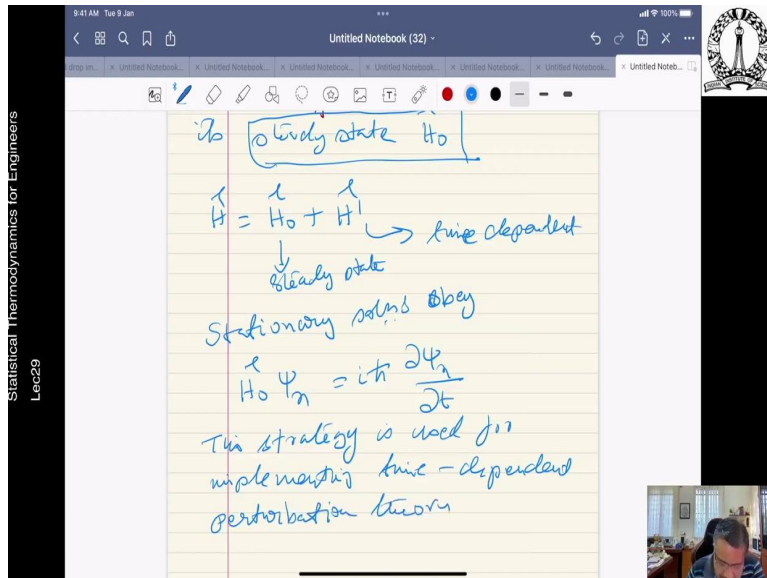 9:41 AM Tue 9 Jan
100%
Untitled Notebook (32)
drop im...
× Untitled Notebook...
× Untitled Notebook...
× Untitled Notebook...
× Untitled Notebook...
× Untitled Notebook...
× Untitled Notebook...
× Untitled Noteb...
Statistical Thermodynamics for Engineers
Lec29
is steady state Ĥ₀
Ĥ = Ĥ₀ + Ĥ' → time dependent
↓
steady state
Stationary solns obey
Ĥ₀ Ψₙ = iħ ∂Ψₙ/∂t
This strategy is used for
implementing time-dependent
perturbation theory